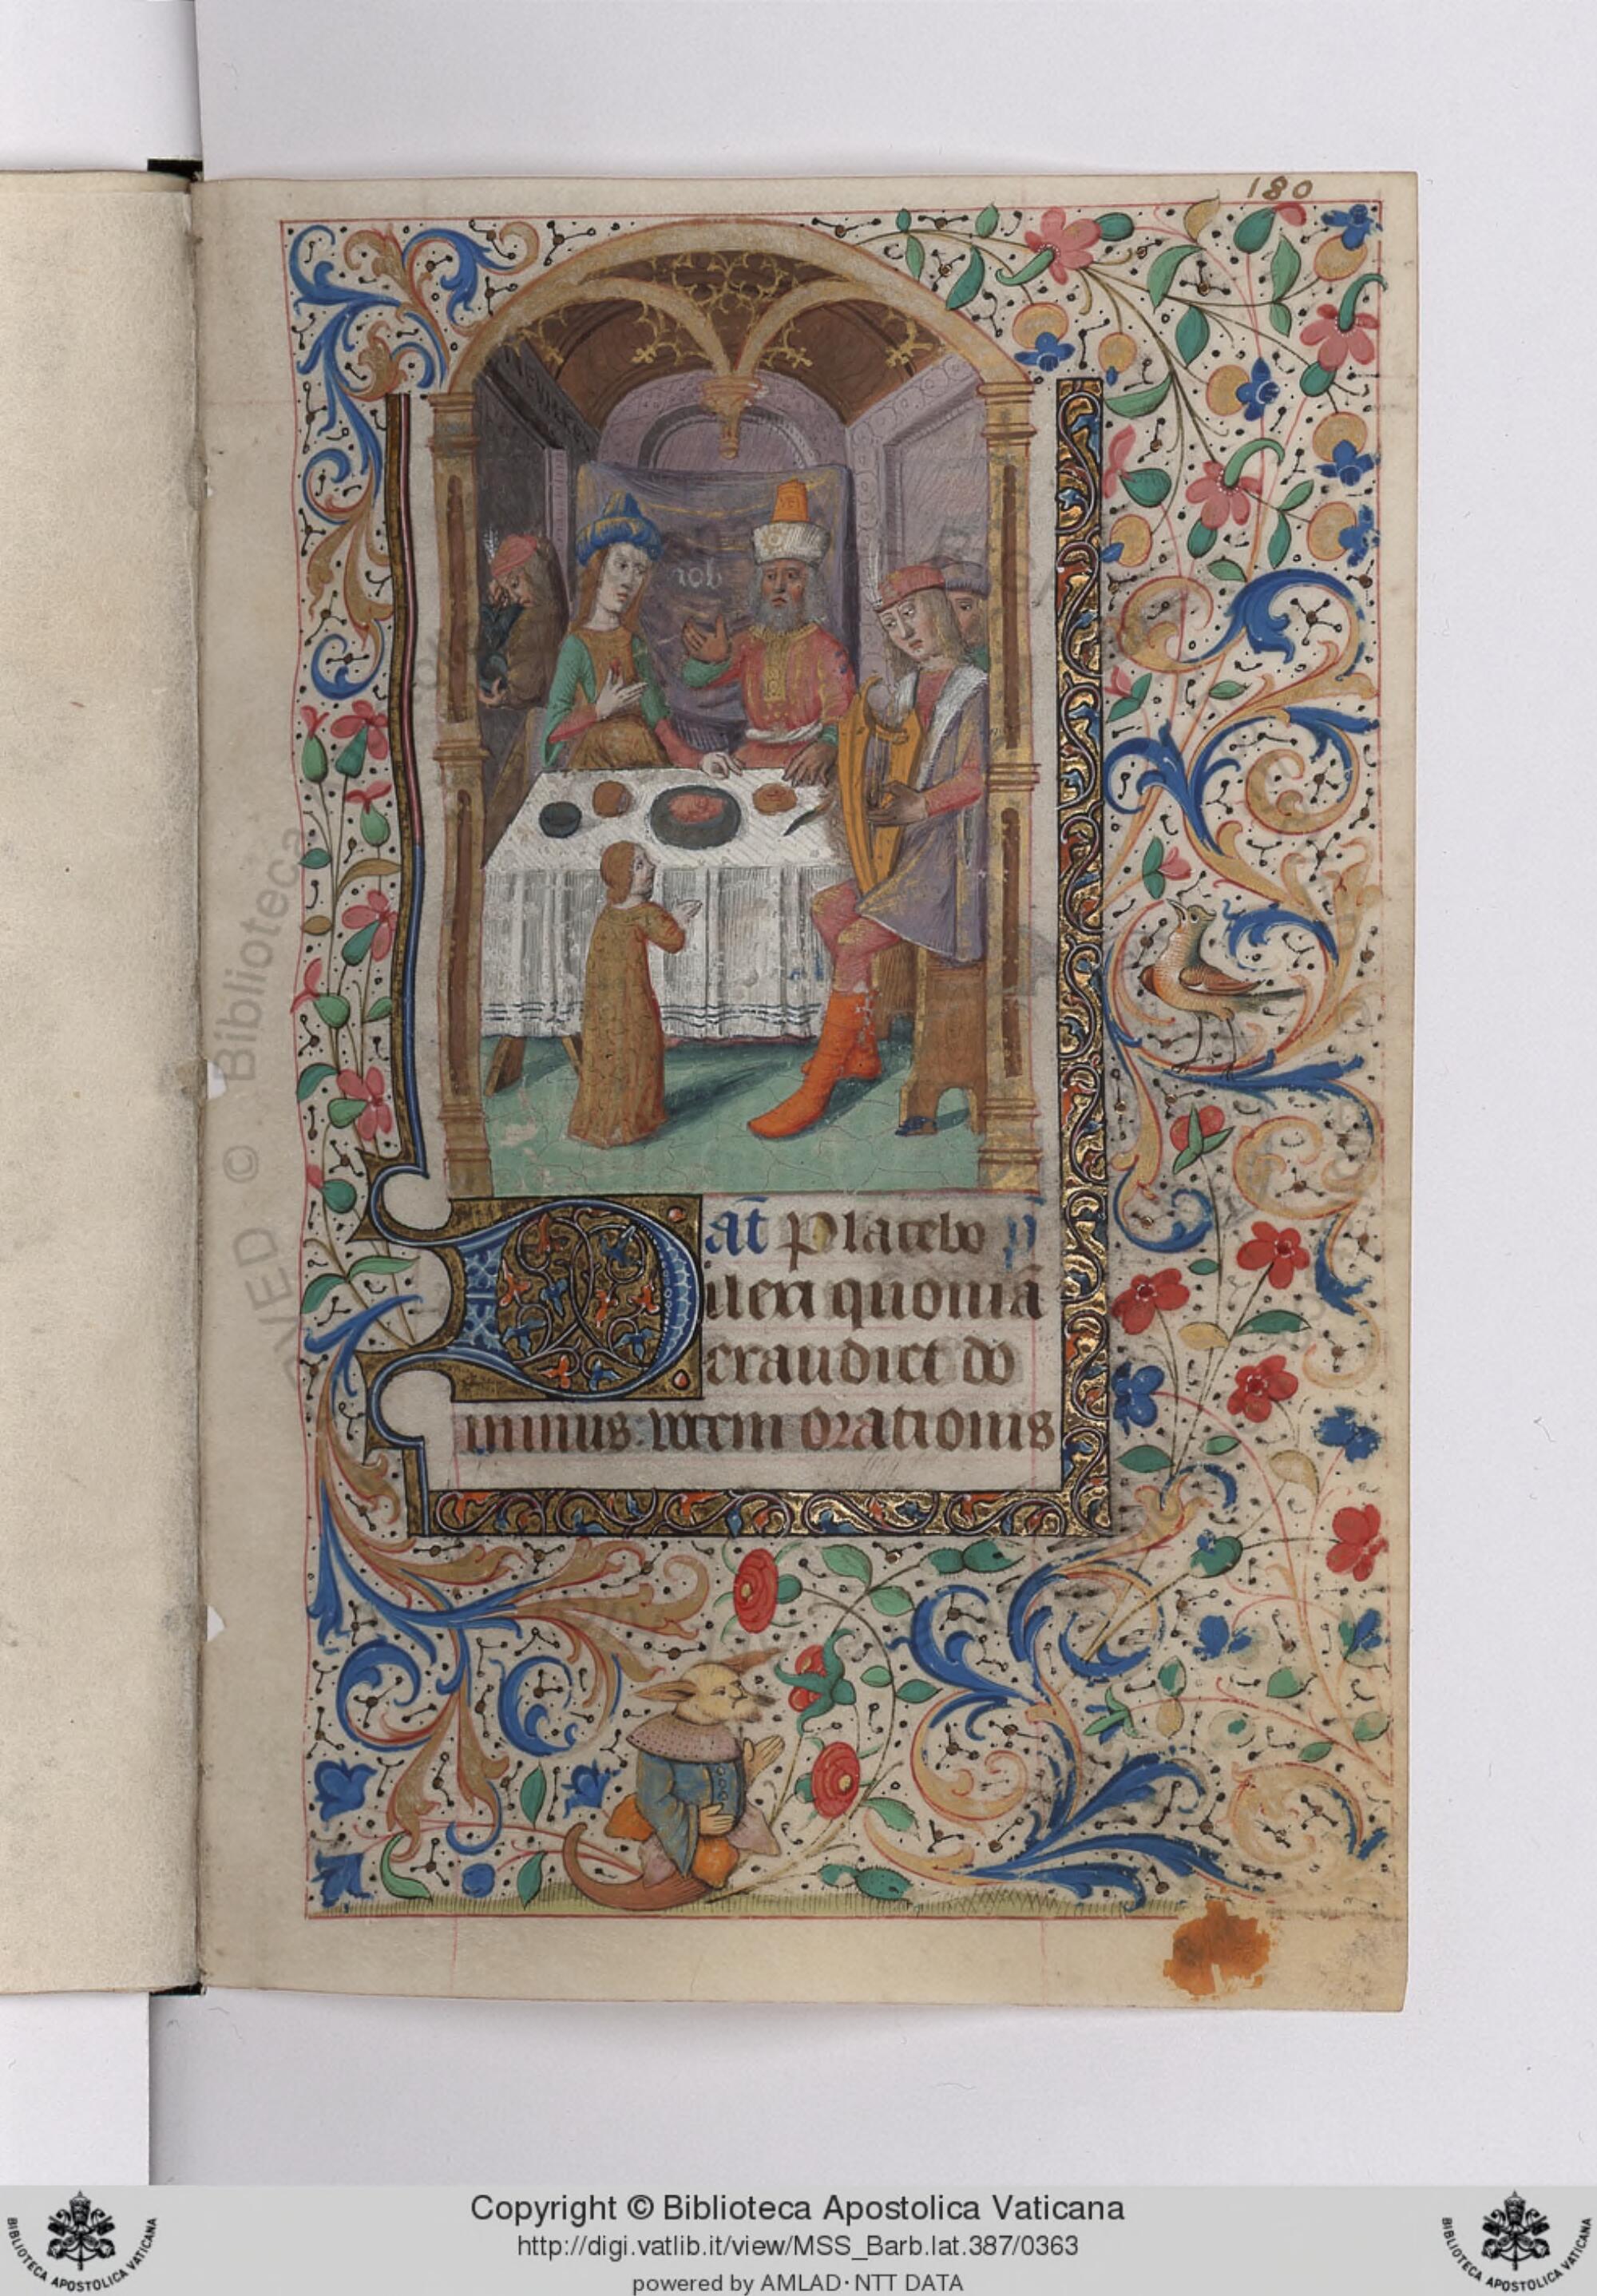 180
Job
at Placebo ps
Dilexi quoniã
exaudiet do
minus: vocem orationis
RVED © Biblioteca
Copyright © Biblioteca Apostolica Vaticana
http://digi.vatlib.it/view/MSS_Barb.lat.387/0363
powered by AMLAD·NTT DATA
BIBLIOTECA APOSTOLICA VATICANA
BIBLIOTECA APOSTOLICA VATICANA